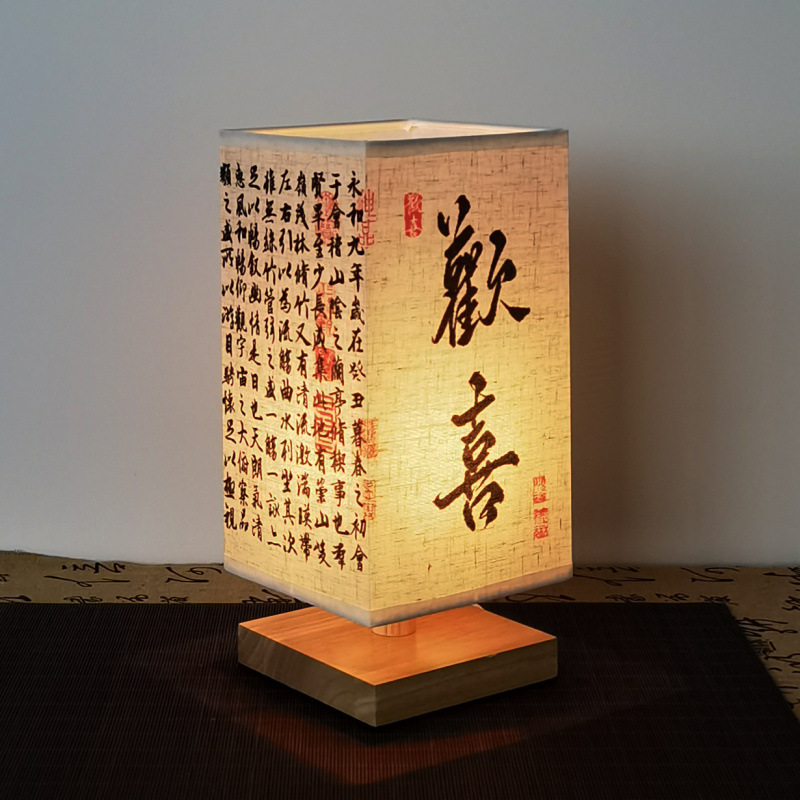 歡喜
永和九年歲在癸丑暮春之初會
于會稽山陰之蘭亭脩禊事也羣
賢畢至少長咸集此地有崇山峻
嶺茂林脩竹又有清流激湍暎帶
左右引以為流觴曲水列坐其次
雖無絲竹管弦之盛一觴一詠亦
足以暢敘幽情是日也天朗氣清
惠風和暢仰觀宇宙之大俯察品
類之盛所以遊目騁懷足以極視